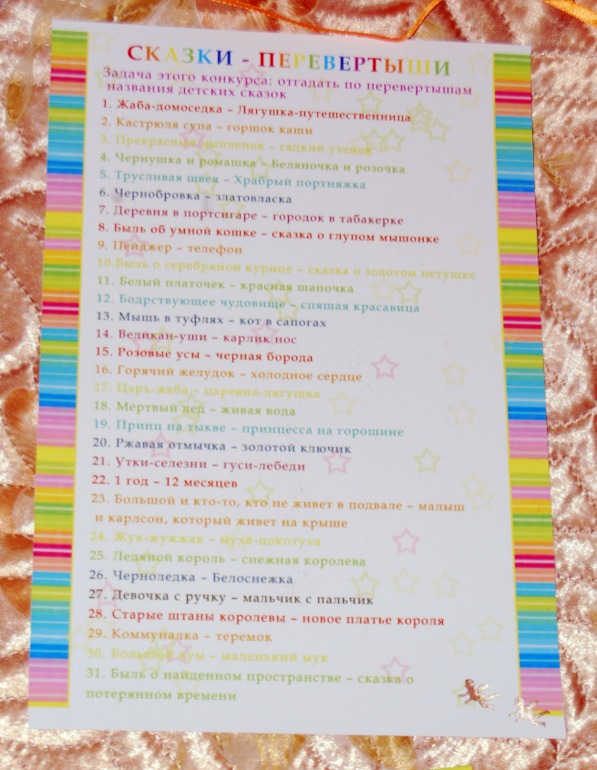 СКАЗКИ - ПЕРЕВЕРТЫШИ
Задача этого конкурса: отгадать по перевертышам
названия детских сказок
1. Жаба-домоседка – Лягушка-путешественница
2. Кастрюля супа – горшок каши
3. Прекрасный цыпленок – гадкий утенок
4. Чернушка и ромашка – Беляночка и розочка
5. Трусливая швея – Храбрый портняжка
6. Чернобровка – златовласка
7. Деревня в портсигаре – городок в табакерке
8. Быль об умной кошке – сказка о глупом мышонке
9. Пейджер – телефон
10.Быль о серебряной курице – сказка о золотом петушке
11. Белый платочек – красная шапочка
12. Бодрствующее чудовище – спящая красавица
13. Мышь в туфлях – кот в сапогах
14. Великан-уши – карлик нос
15. Розовые усы – черная борода
16. Горячий желудок – холодное сердце
17. Царь-жаба – царевна-лягушка
18. Мертвый лед – живая вода
19. Принц на тыкве – принцесса на горошине
20. Ржавая отмычка – золотой ключик
21. Утки-селезни – гуси-лебеди
22. 1 год – 12 месяцев
23. Большой и кто-то, кто не живет в подвале – малыш
и карлсон, который живет на крыше
24. Жук-жужжак – муха-цокотуха
25. Ледяной король – снежная королева
26. Черноледка – Белоснежка
27. Девочка с ручку – мальчик с пальчик
28. Старые штаны королевы – новое платье короля
29. Коммуналка – теремок
30. Большой ум – маленький мук
31. Быль о найденном пространстве – сказка о
потерянном времени